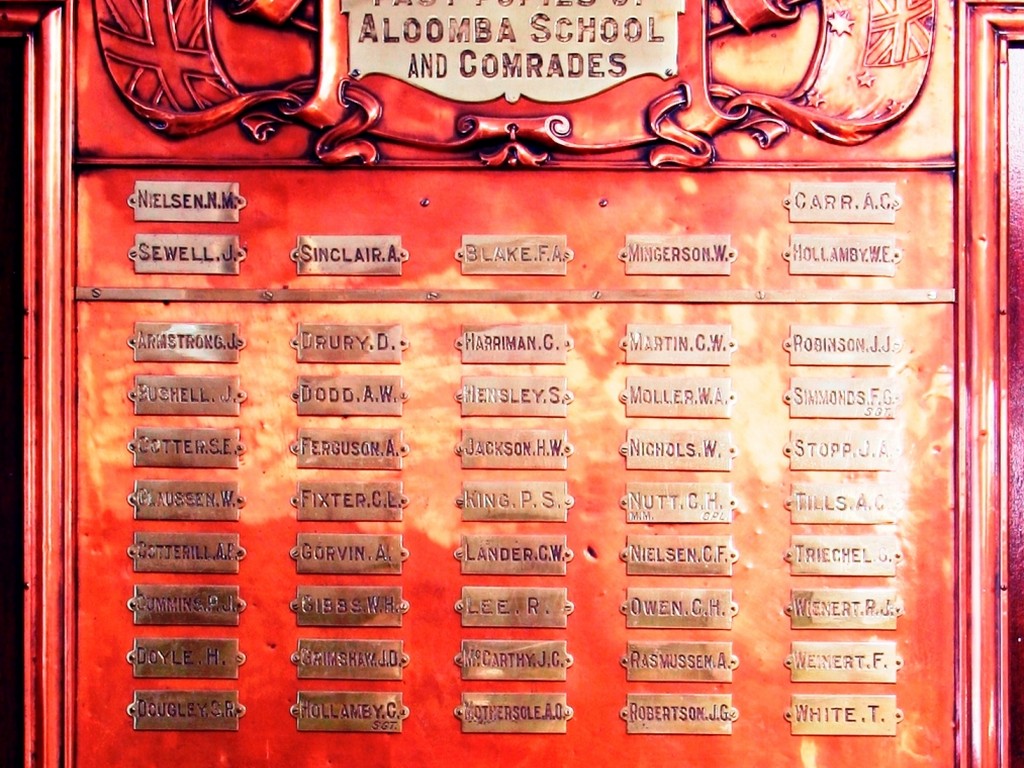 PAST PUPILS OF
ALOOMBA SCHOOL
AND COMRADES
NIELSEN.N.M. CARR.A.C.
SEWELL.J. SINCLAIR.A. BLAKE.F.A. MINGERSON.W. HOLLAMBY.W.E.
ARMSTRONG.J. DRURY.D. HARRIMAN.C. MARTIN.C.W. ROBINSON.J.J.
BUSHELL.J. DODD.A.W. HENSLEY.S. MOLLER.W.A. SIMMONDS.F.G.
SGT.
COTTER.S.E. FERGUSON.A. JACKSON.H.W. NICHOLS.W. STOPP.J.A.
CLAUSSEN.W. FIXTER.C.L. KING.P.S. NUTT.C.H. TILLS.A.C.
M.M. CPL.
COTTERILL.A.E. GORVIN.A. LANDER.C.W. NIELSEN.C.F. TRIECHEL.J.
CUMMINS.P.J. GIBBS.W.H. LEE.R. OWEN.G.H. WIENERT.R.J.
DOYLE.H. GRIMSHAW.J.O. McCARTHY.J.C. RASMUSSEN.A. WEINERT.F.
DOUGLEY.S.R. HOLLAMBY.C. MOTHERSOLE.A.O. ROBERTSON.J.G. WHITE.T.
SGT.